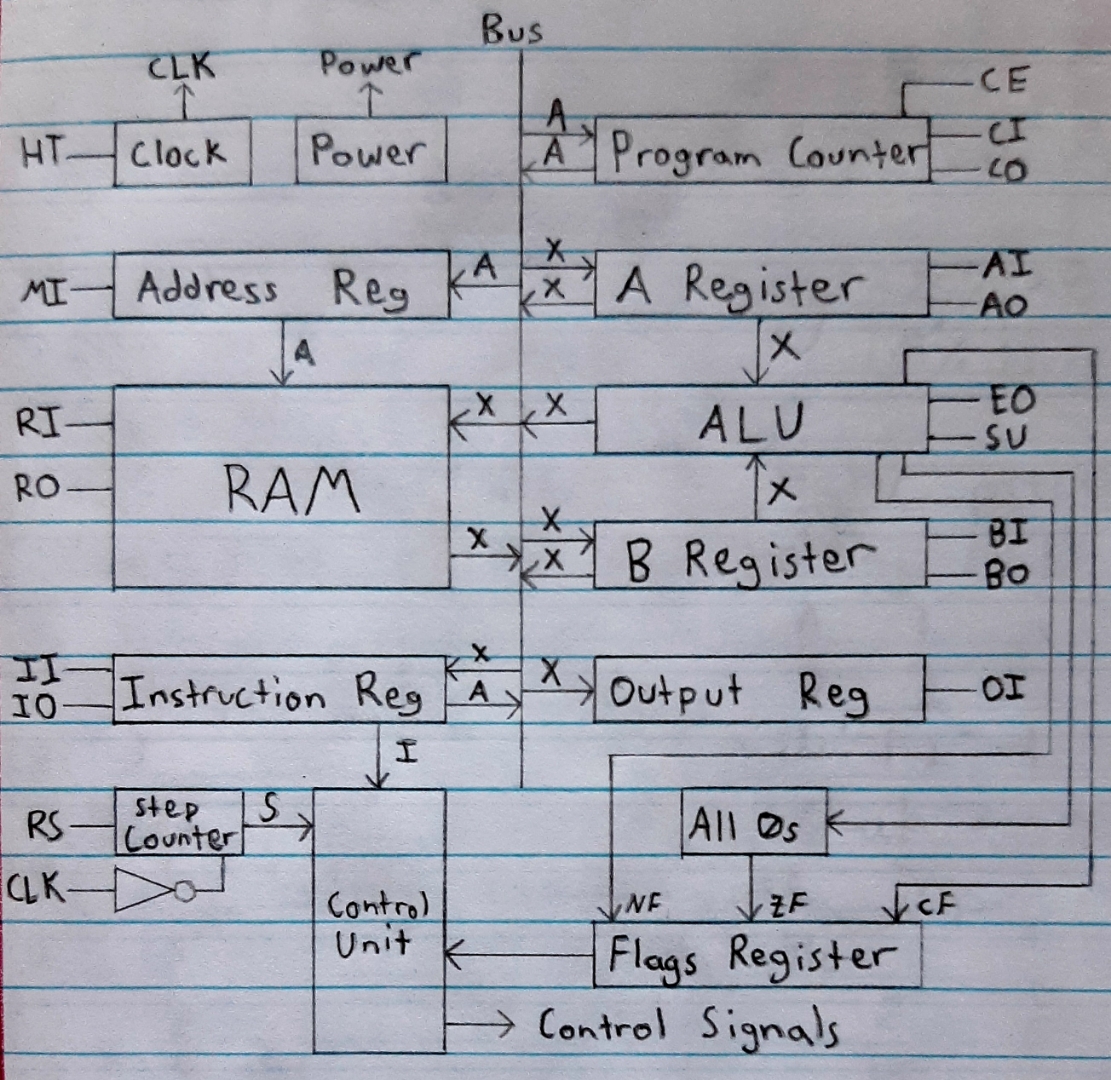 Bus
CLK
Power
CE
HT
Clock
Power
A
A
Program Counter
CI
CO
MI
Address Reg
A
X
X
A Register
AI
AO
A
X
RI
RO
RAM
X
X
ALU
EO
SU
X
X
X
X
B Register
BI
BO
II
IO
Instruction Reg
X
A
X
Output Reg
OI
I
RS
Step
Counter
S
All 0s
CLK
Control
Unit
NF
ZF
CF
Flags Register
Control Signals